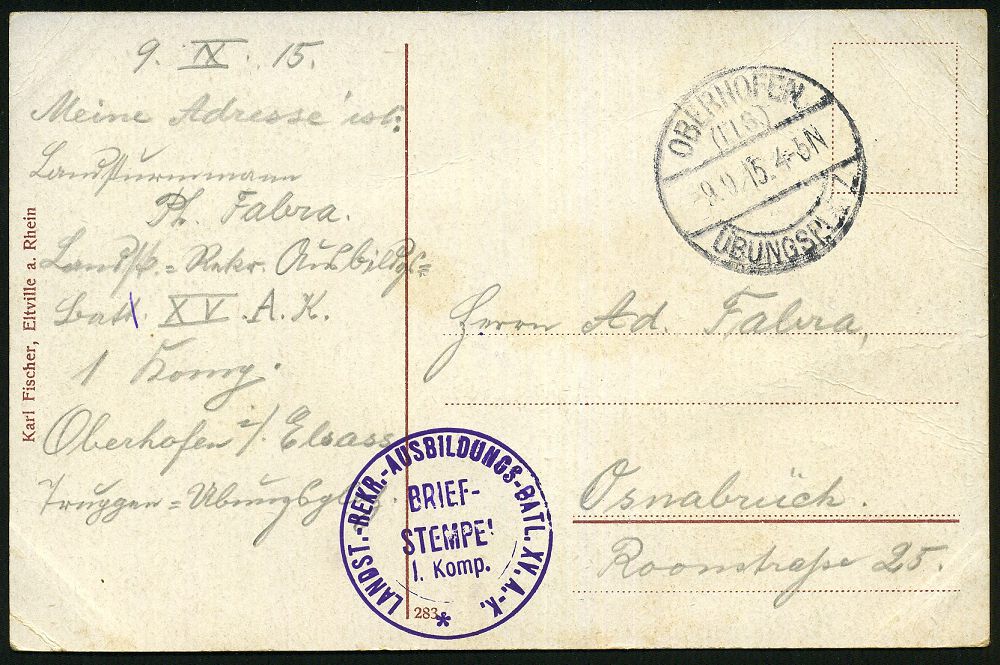 9. IX. 15.
Meine Adresse ist:
Landsturmmann
Ph. Fabra.
Landst = Rekr. Ausbildgs=
Batl. XV. A. K.
1 Komp.
Oberhofen i/. Elsass
Truppen = Übungsplatz.
Karl Fischer, Eltville a. Rhein
OBERHOFEN
(ELS.)
-9.9.15.4-5N
ÜBUNGSPLATZ
Herrn Ad. Fabra,
Osnabrück.
Roonstraße 25.
LANDST.-REKR.-AUSBILDUNGS-BATL. XV. A.-K.
BRIEF-
STEMPEL
1. Komp.
*
283